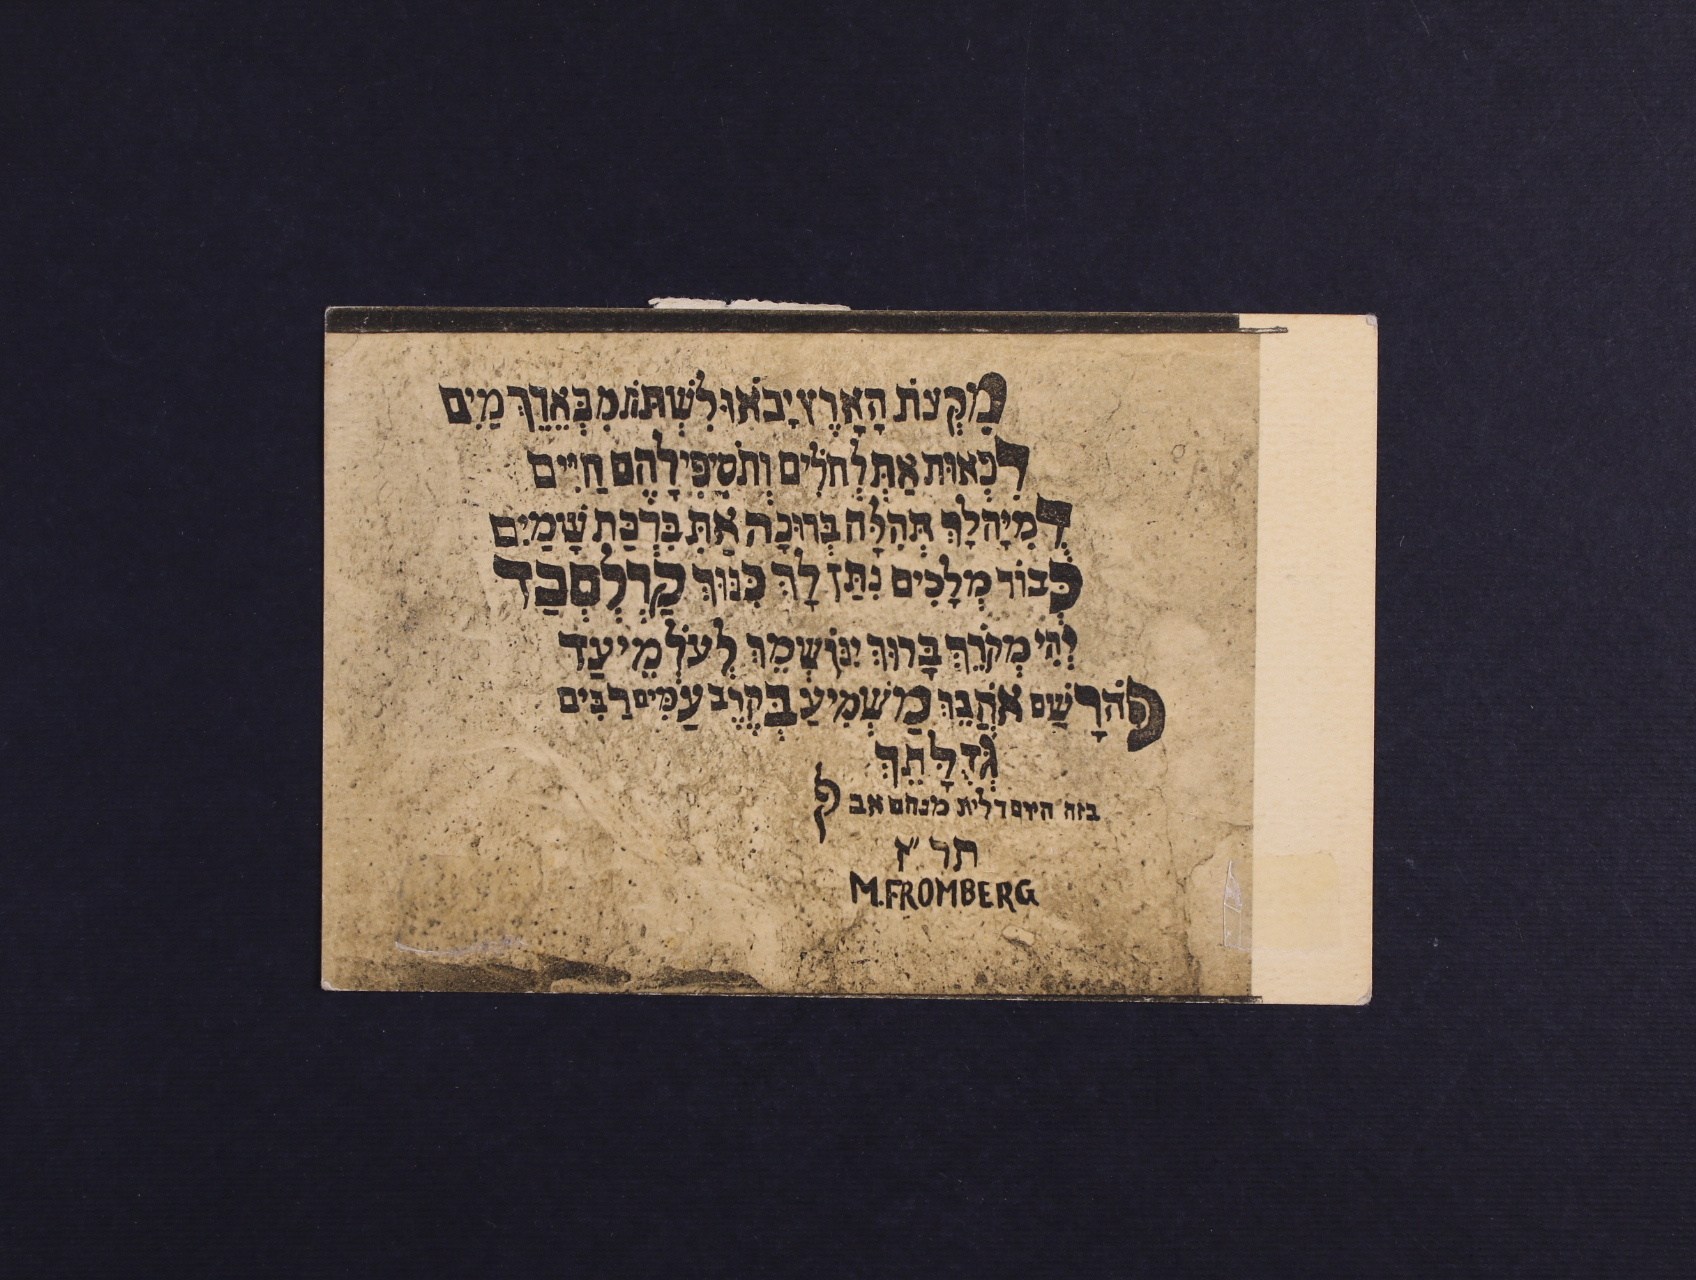 מִקְצֹת הָאָרֶץ יָבֹאוּ לִשְׁתֹּת מִבְּאֵרֵךְ מַיִם
רְפֻאוֹת אַתְּ לְחֹלִים וְתֹסִיפִי לָהֶם חַיִּים
דֻּמִיָּה לָךְ תְּהִלָּה בְּרוּכָה אַתְּ בִּרְכַּת שָׁמַיִם
כְּבוֹד מְלָכִים נִתַּן לָךְ כִּנּוּךְ קַרְלְסְבַּד
יְהִי מְקֹרֵךְ בָּרוּךְ יִנּוֹן שְׁמֵךְ לְעֹלְמֵי עַד
פֹּה רָשַׁם אֹהֲבֵךְ מַשְׁמִיעַ בְּקֶרֶב עַמִּים רַבִּים
גְּדֻלָּתֵךְ
בזה היום דלית מנחם אב
תר״ז
M. FROMBERG